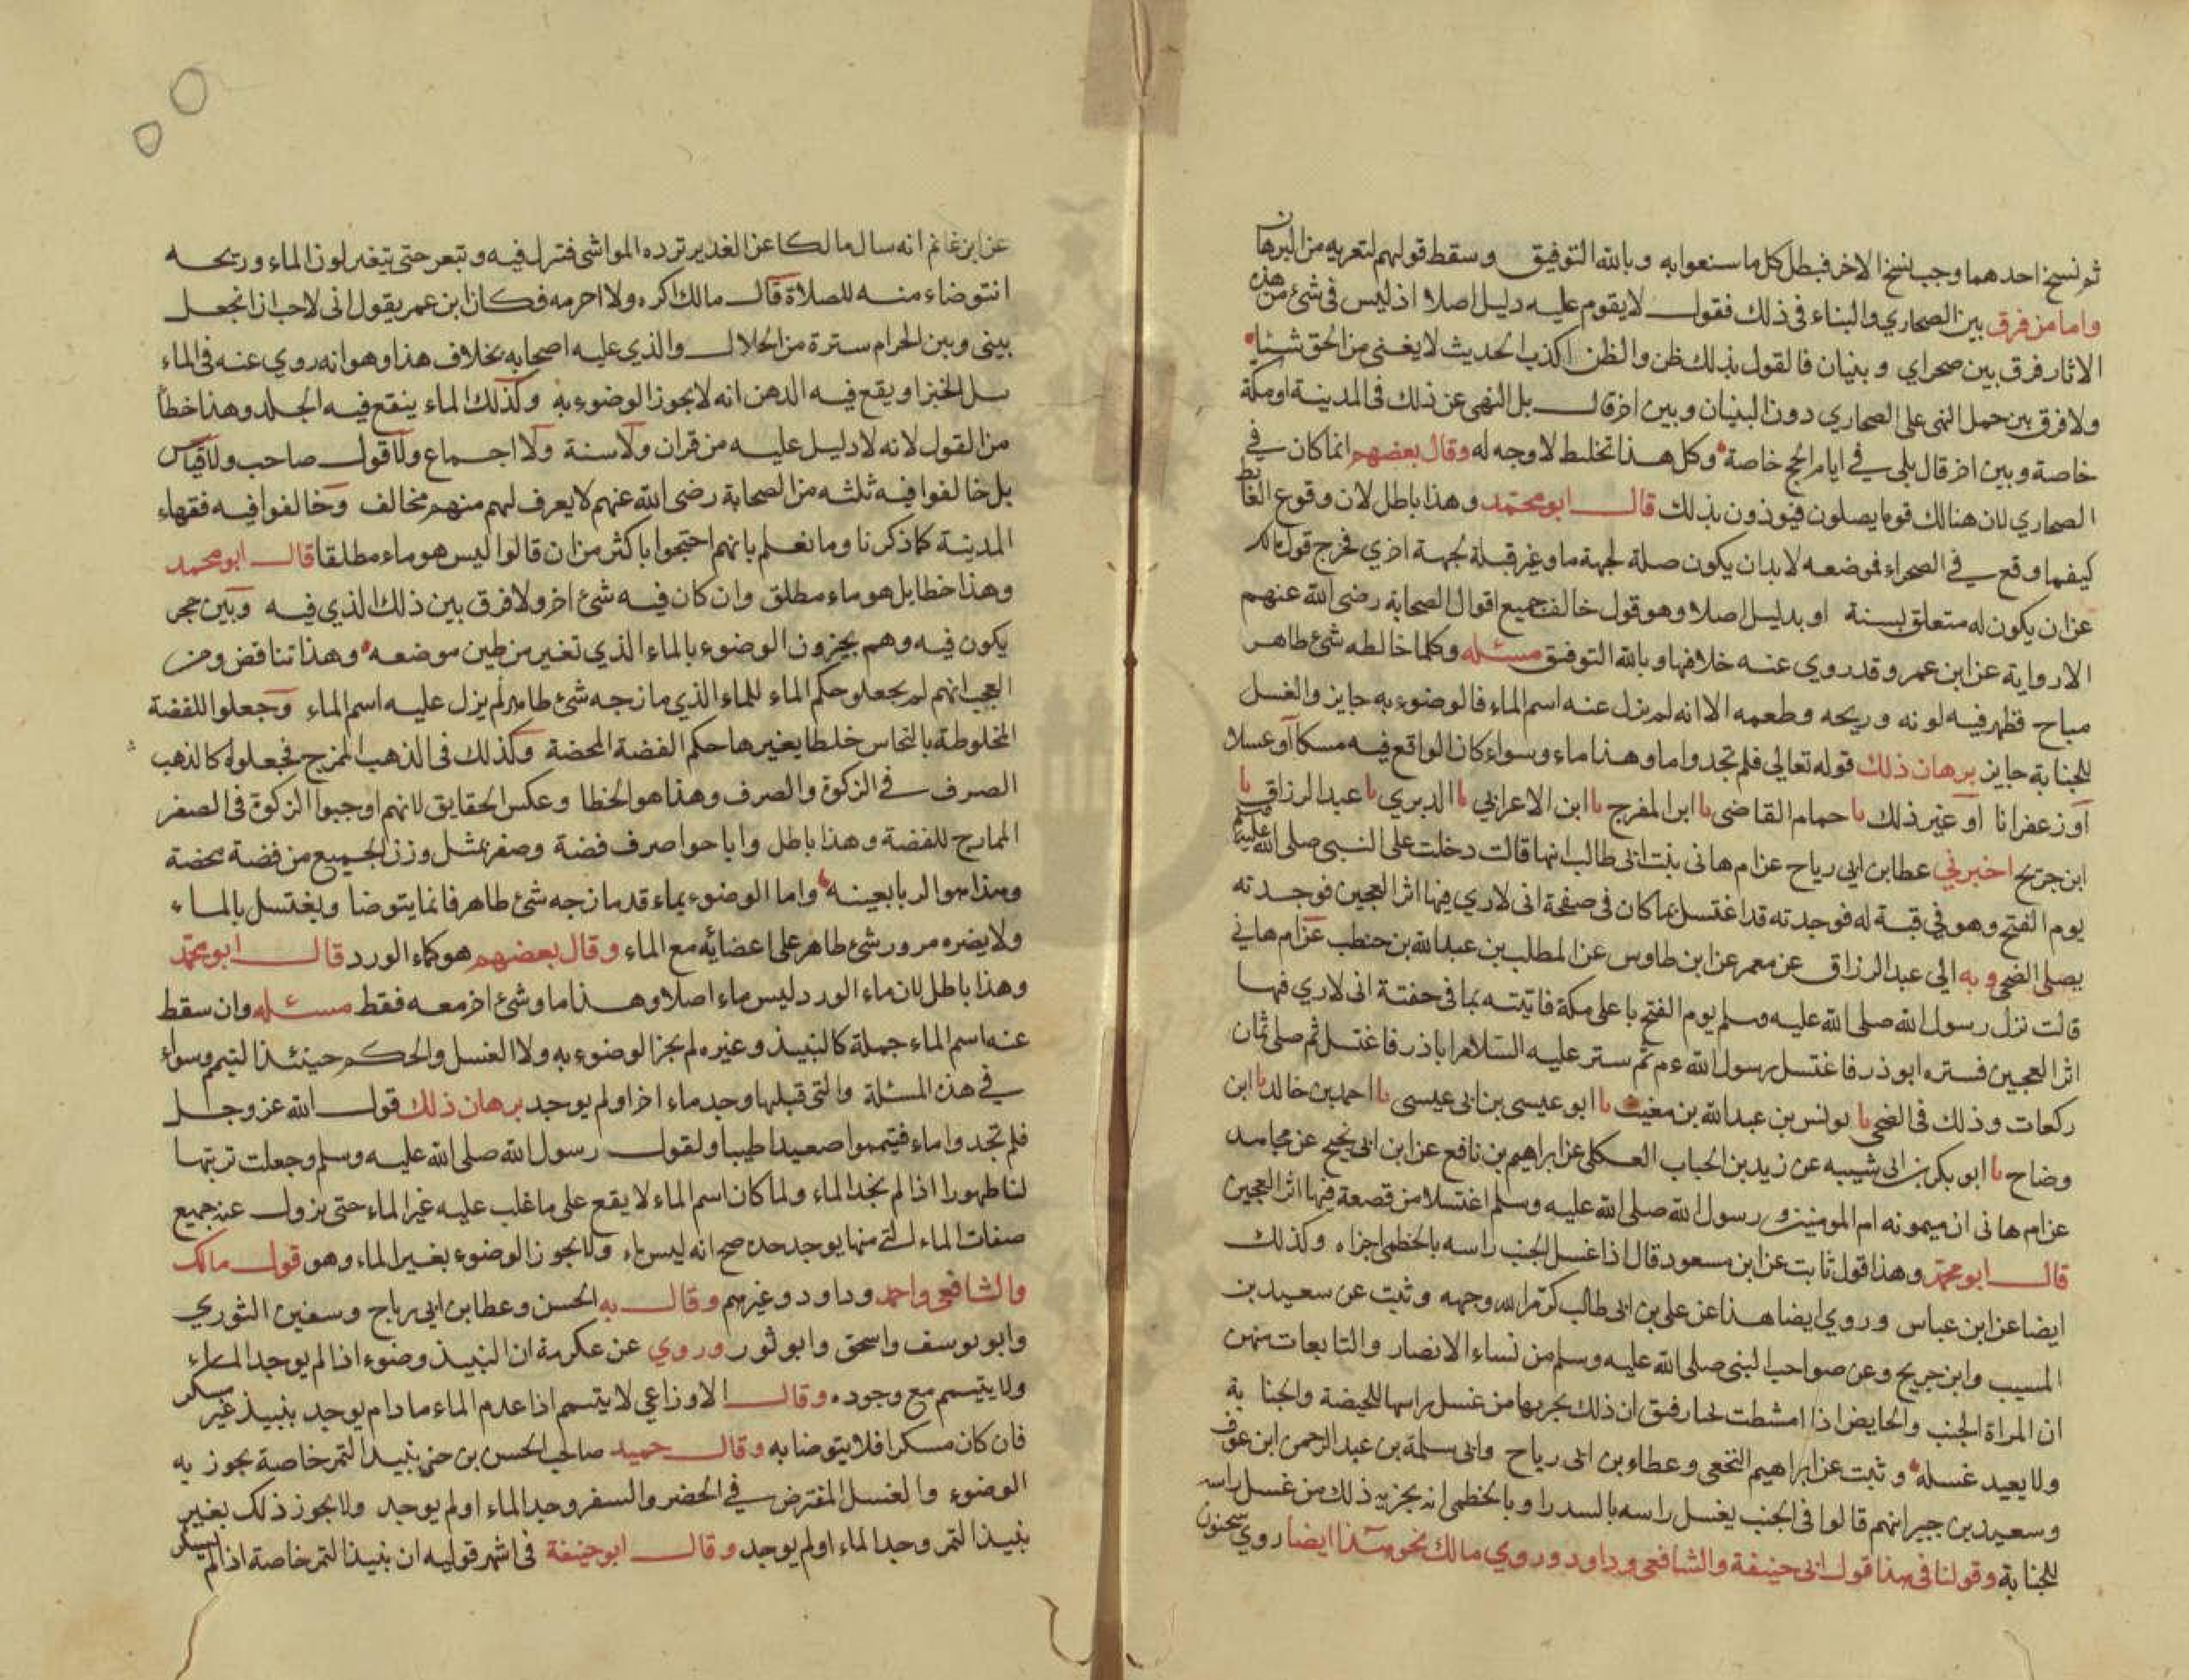 ثم نسخ احدهما وجب نسخ الاخر فبطل كل ما سنعوا به وبالله التوفيق وسقط قولهم لتعريه من البرهان
واما من فرق بين الصحاري والبناء في ذلك فقول لا يقوم عليه دليل اصلا اذ ليس في شئ من هذه
الاثار فرق بين صحراي وبنيان فالقول بذلك ظن والظن اكذب الحديث لا يغني من الحق شيا
ولا فرق بين حمل النهي على الصحاري دون البنيان وبين اخر قال بل النهي عن ذلك في المدينة او مكة
خاصة وبين اخر قال بلى في ايام الحج خاصة وكل هذا تخليط لا وجه له وقال بعضهم انما كان في
الصحاري لان هنالك قوما يصلون فيوذون بذلك قال ابو محمد وهذا باطل لان وقوع الغايط
كيفما وقع في الصحراء فموضعه لا بد ان يكون صلة لجهة ما وغير قبلة لجهة اخري فخرج قول مالك
عن ان يكون له متعلق بسنة او بدليل اصلا وهو قول خالف جميع اقوال الصحابة رضي الله عنهم
الا رواية عن ابن عمر وقد روي عنه خلافها وبالله التوفيق مسئله وكلما خالطه شئ طاهر
مباح فظهر فيه لونه وريحه وطعمه الا انه لم يزل عنه اسم الماء فالوضوء به جايز والغسل
للجنابة جايز برهان ذلك قوله تعالي فلم تجدوا ما وهذا ماء وسواء كان الواقع فيه مسكا او عسلا
او زعفرانا او غير ذلك نا حمام القاضي نا ابن المفرج نا ابن الاعرابي نا الدبري نا عبد الرزاق نا
ابن جريج اخبرني عطا بن ابي رباح عن ام هاني بنت ابي طالب انها قالت دخلت على النبي صلى الله عليه وسلم
يوم الفتح وهو في قبة له فوجدته قد اغتسل بما كان في صفحة اني لاري فيها اثر العجين فوجدته
يصلي الضحي وبه الي عبد الرزاق عن معمر عن ابن طاوس عن المطلب بن عبد الله بن حنطب عن ام هاني
قالت نزل رسول الله صلى الله عليه وسلم يوم الفتح با على مكة فاتيته بما في جفنة اني لاري فيها
اثر العجين فستره ابوذر فاغتسل رسول الله عم ثم ستر عليه السلام اباذر فاغتسل ثم صلى ثمان
ركعات وذلك في الضحي نا يونس بن عبد الله بن مغيث نا ابو عيسى بن ابي عيسى نا احمد بن خالد نا ابن
وضاح نا ابو بكر بن ابي شيبه عن زيد بن الحباب العكلي عن ابراهيم بن نافع عن ابن ابي نجيح عن مجاهد
عن ام هاني ان ميمونه ام المومنين ورسول الله صلى الله عليه وسلم اغتسلا من قصعة فيها اثر العجين
قال ابو محمد وهذا قول ثابت عن ابن مسعود قال اذا غسل الجنب راسه بالخطمي اجزاه وكذلك
ايضا عن ابن عباس وروي ايضا هذا عن علي بن ابي طالب كرم الله وجهه وثبت عن سعيد بن
المسيب وابن جريج وعن صواحب النبي صلى الله عليه وسلم من نساء الانصار والتابعات منهن
ان المراة الجنب والحايض اذا امشطت بحنا رقيق ان ذلك يجزيها من غسل راسها للحيضة والجنابة
ولا يعيد غسله وثبت عن ابراهيم النخعي وعطاء بن ابي رباح وابي سلمة بن عبد الرحمن ابن عوف
وسعيد بن جبير انهم قالوا في الجنب يغسل راسه بالسدر او بالخطمي انه يجزيه ذلك من غسل راسه
للجنابة وقولنا في هذا قول ابي حنيفة والشافعي وداود وروي مالك نحو هذا ايضا روي سحنون
عن ابن غانم انه سال مالكا عن الغدير ترده المواشي فتبول فيه وتبعر حتى يتغير لون الماء وريحه
انتوضاء منه للصلاة قال مالك اكره ولا احرمه فكان ابن عمر يقول اني لاحب ان نجعل
بيني وبين الحرام سترة من الحلال والذي عليه اصحابه بخلاف هذا وهو انه روي عنه في الماء
يبل الخبز او يقع فيه الدهن انه لا يجوز الوضوء به وكذلك الماء ينقع فيه الجلد وهذا خطأ
من القول لانه لا دليل عليه من قران ولا سنة ولا اجماع ولا قول صاحب ولا قياس
بل خالفوا فيه ثلثه من الصحابة رضي الله عنهم لا يعرف لهم منهم مخالف وخالفوا فيه فقهاء
المدينة كما ذكرنا وما نعلم بانهم احتجوا باكثر من ان قالوا ليس هو ماء مطلقا قال ابو محمد
وهذا خطا بل هو ماء مطلق وان كان فيه شئ اخر ولا فرق بين ذلك الذي فيه وبين حجر
يكون فيه وهم يجزون الوضوء بالماء الذي تغير من طين موضعه وهذا تناقض ومن
العجب انهم لم يجعلو حكم الماء للماء الذي مازجه شئ طاهر لم يزل عليه اسم الماء وجعلوا للفضة
المخلوطة بالنحاس خلطا يغيرها حكم الفضة المحضة وكذلك في الذهب الممزج فجعلوه كالذهب
الصرف في الزكوة والصرف وهذا هو الخطا وعكس الحقايق لانهم اوجبوا الزكوة في الصفر
الممازج للفضة وهذا باطل واباحوا صرف فضة وصفر بمثل وزن الجميع من فضة محضة
وهذا هو الربا بعينه واما الوضوء بماء قد مازجه شئ طاهر فانما يتوضا ويغتسل بالماء
ولا يضره مرور شئ طاهر على اعضائه مع الماء وقال بعضهم هو كماء الورد قال ابو محمد
وهذا باطل لان ماء الورد ليس ماء اصلا وهذا ما وشئ اخر معه فقط مسئله وان سقط
عنه اسم الماء جملة كالنبيذ وغيره لم يجز الوضوء به ولا الغسل والحكم حينئذ التيمم وسواء
في هذه المسئلة والتي قبلها وجد ماء اخر او لم يوجد برهان ذلك قول الله عز وجل
فلم تجدوا ماء فتيمموا صعيدا طيبا ولقول رسول الله صلى الله عليه وسلم وجعلت تربتها
لنا طهورا اذا لم نجد الماء ولما كان اسم الماء لا يقع على ما غلب عليه غير الماء حتى تزول عنه جميع
صفات الماء التي منها يوجد حده صح انه ليس ماء ولا يجوز الوضوء بغير الماء وهو قول مالك
والشافعي واحمد وداود وغيرهم وقال به الحسن وعطا بن ابي رباح وسفين الثوري
وابو يوسف واسحق وابو ثور وروي عن عكرمة ان النبيذ وضوء اذا لم يوجد الماء
ولا يتيمم مع وجوده وقال الاوزاعي لا يتيمم اذا عدم الماء ما دام يوجد بنبيذ غير مسكر
فان كان مسكرا فلا يتوضا به وقال حميد صاحب الحسن بن حي نبيذ التمر خاصة يجوز به
الوضوء والغسل المفترض في الحضر والسفر وجد الماء او لم يوجد ولا يجوز ذلك بغير
نبيذ التمر وجد الماء او لم يوجد وقال ابو حنيفة في اشهر قوليه ان نبيذ التمر خاصة اذا لم يسكر